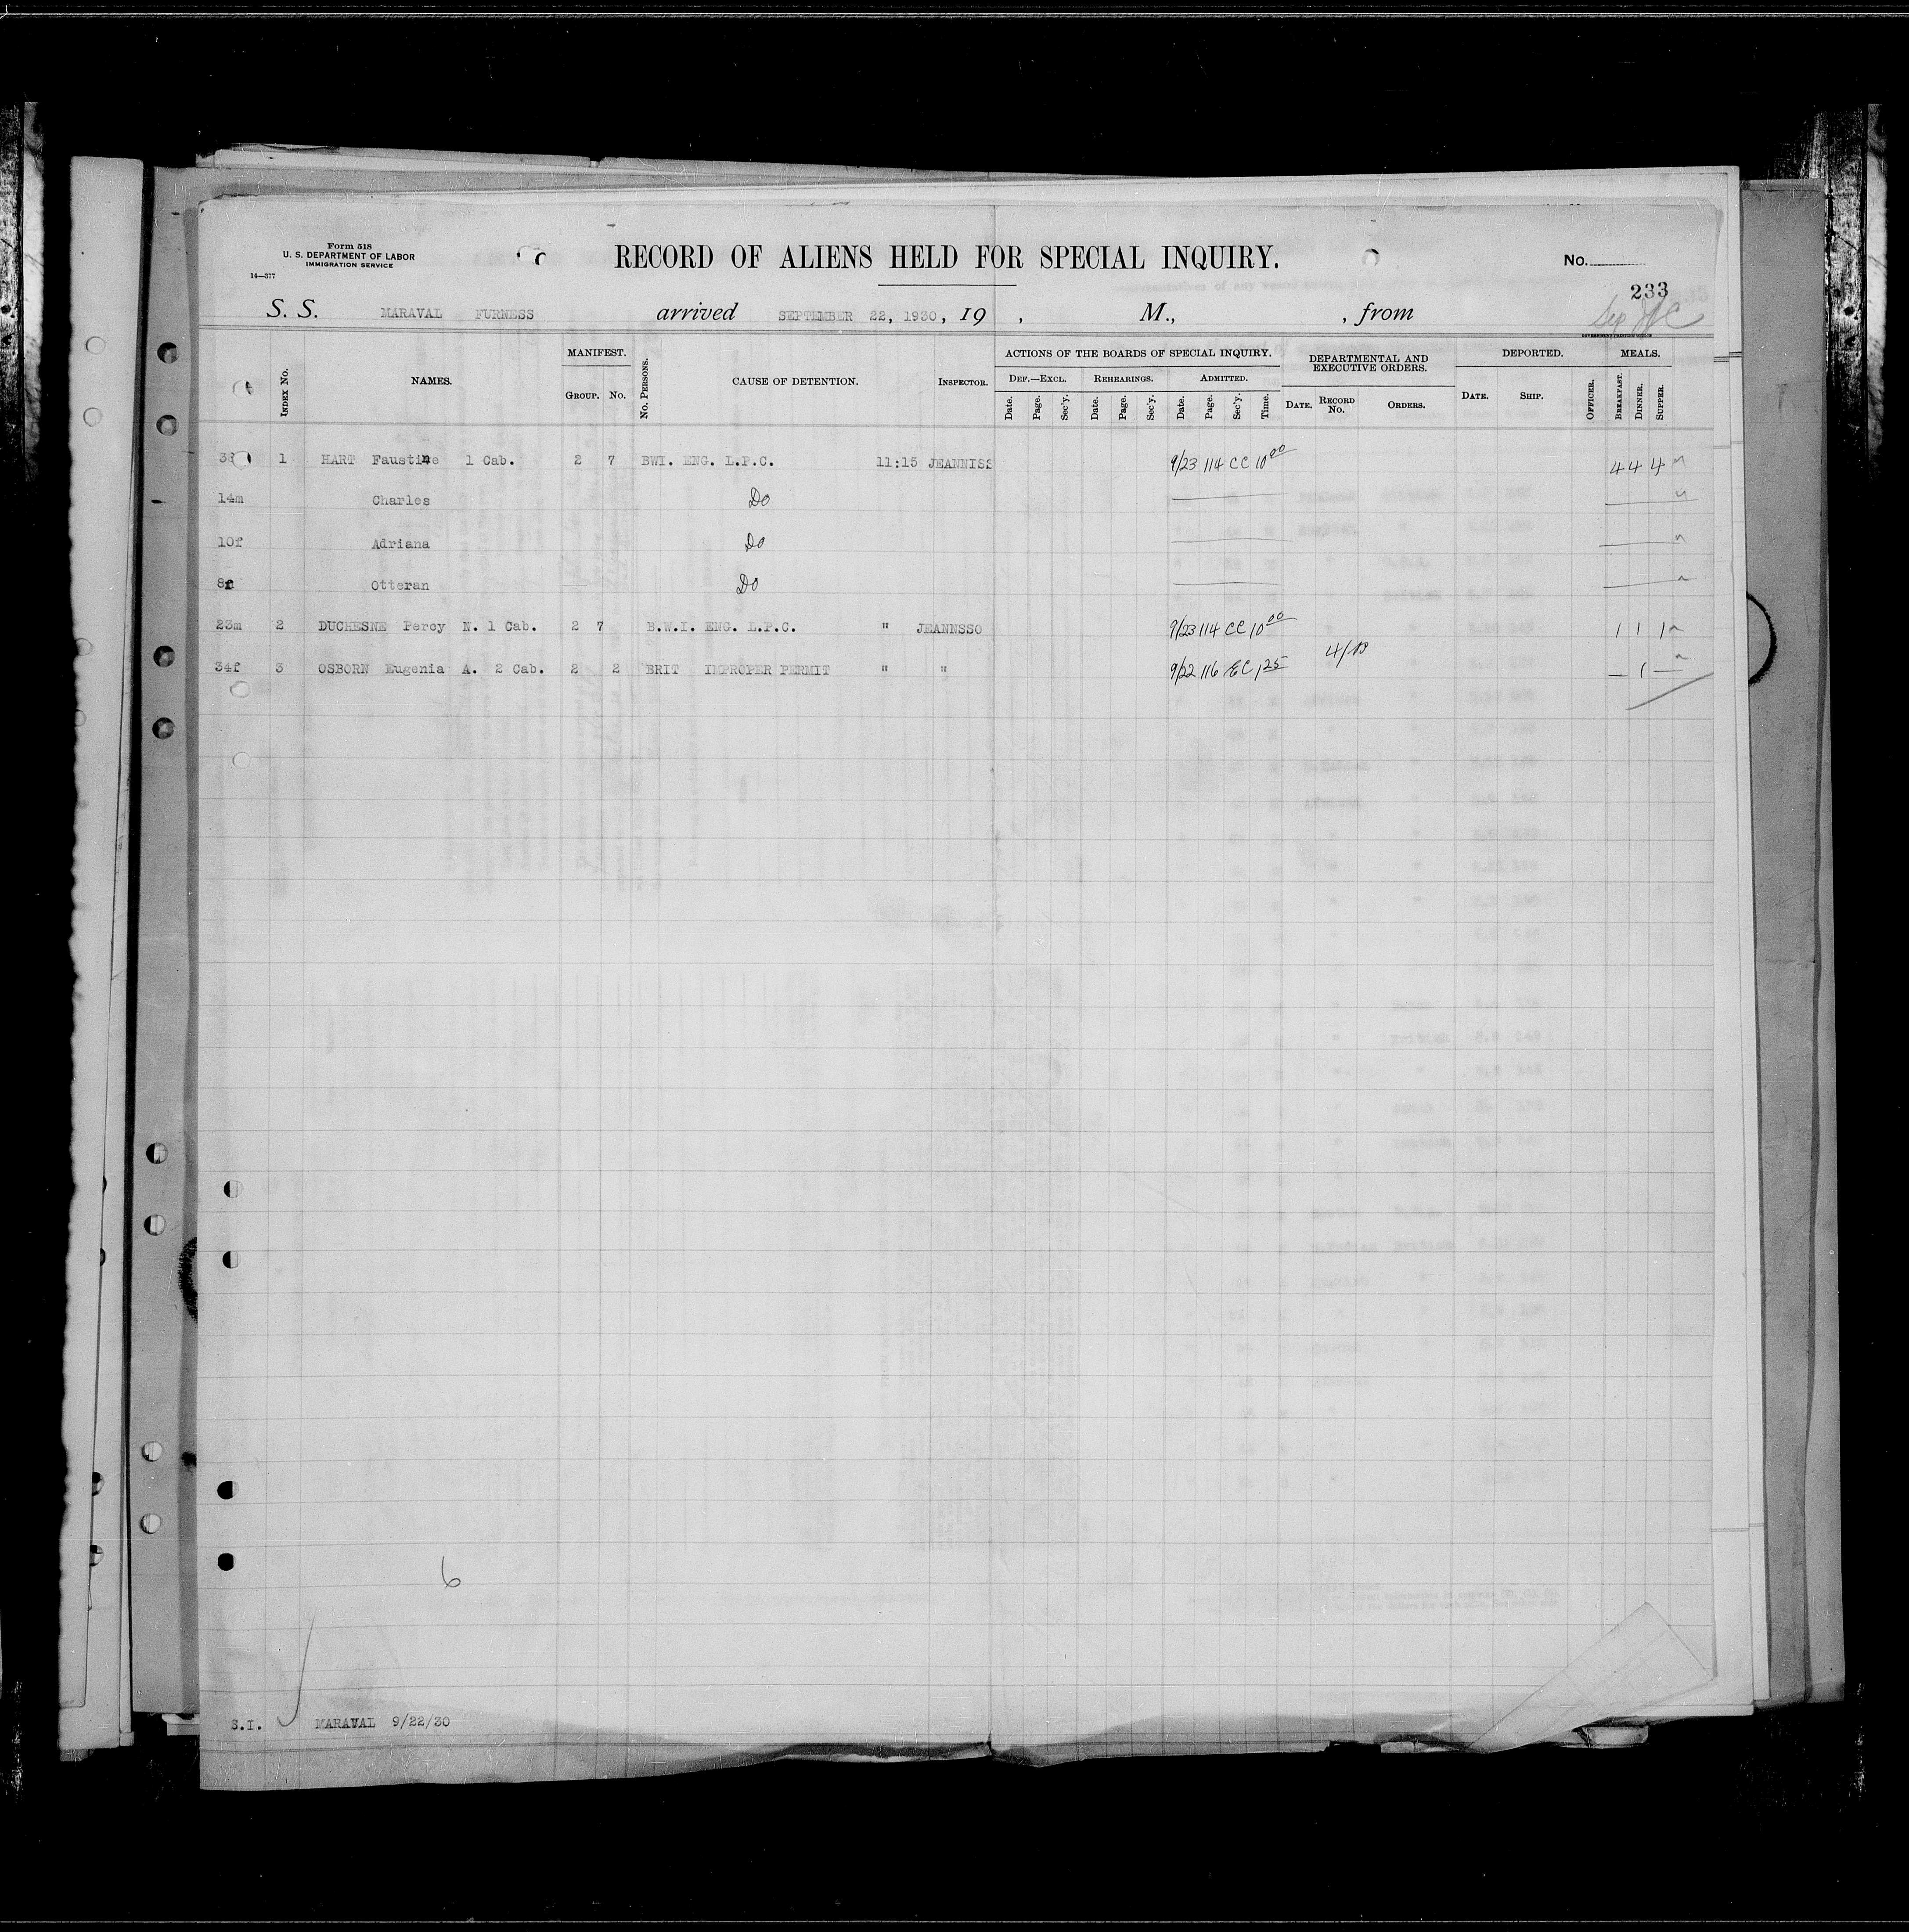 Form 518
U. S. DEPARTMENT OF LABOR
IMMIGRATION SERVICE
14—377
RECORD OF ALIENS HELD FOR SPECIAL INQUIRY.
No.
233
S. S. MARAVAL FURNESS arrived SEPTEMBER 22, 1930, 19 , M., , from
INDEX No. NAMES. MANIFEST. GROUP. No. No. PERSONS. CAUSE OF DETENTION. INSPECTOR. ACTIONS OF THE BOARDS OF SPECIAL INQUIRY. DEF.—EXCL. Date. Page. Sec'y. REHEARINGS. Date. Page. Sec'y. ADMITTED. Date. Page. Sec'y. Time. DEPARTMENTAL AND EXECUTIVE ORDERS. DATE. RECORD No. ORDERS. DEPORTED. DATE. SHIP. OFFICER. MEALS. BREAKFAST. DINNER. SUPPER.
1 HART Faustine 1 Cab. 2 7 BWI. ENG. L.P.C. 11:15 JEANNISS 9/23 114 CC 10 00 4 4 4
14m Charles Do
10f Adriana Do
8f Otteran Do
23m 2 DUCHESNE Percy N. 1 Cab. 2 7 B.W.I. ENG. L.P.C. " JEANNSSO 9/23 114 CC 10 00 1 1 1
34f 3 OSBORN Eugenia A. 2 Cab. 2 2 BRIT IMPROPER PERMIT " " 9/22 116 EC 1 25 — 1 —
6
S.I. MARAVAL 9/22/30